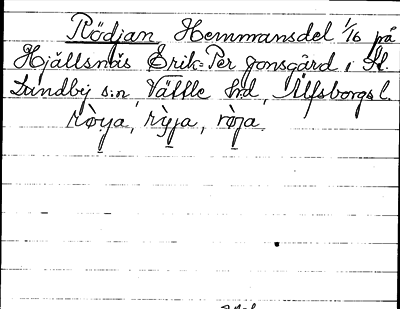 Rödjan Hemmansdel 1/16 på
Hjällsnäs Erik=Per Jonsgård i St.
Lundby s:n, Vättle hrd, Älfsborgs l.
rø̀ya, rỳja, rø̀ja.